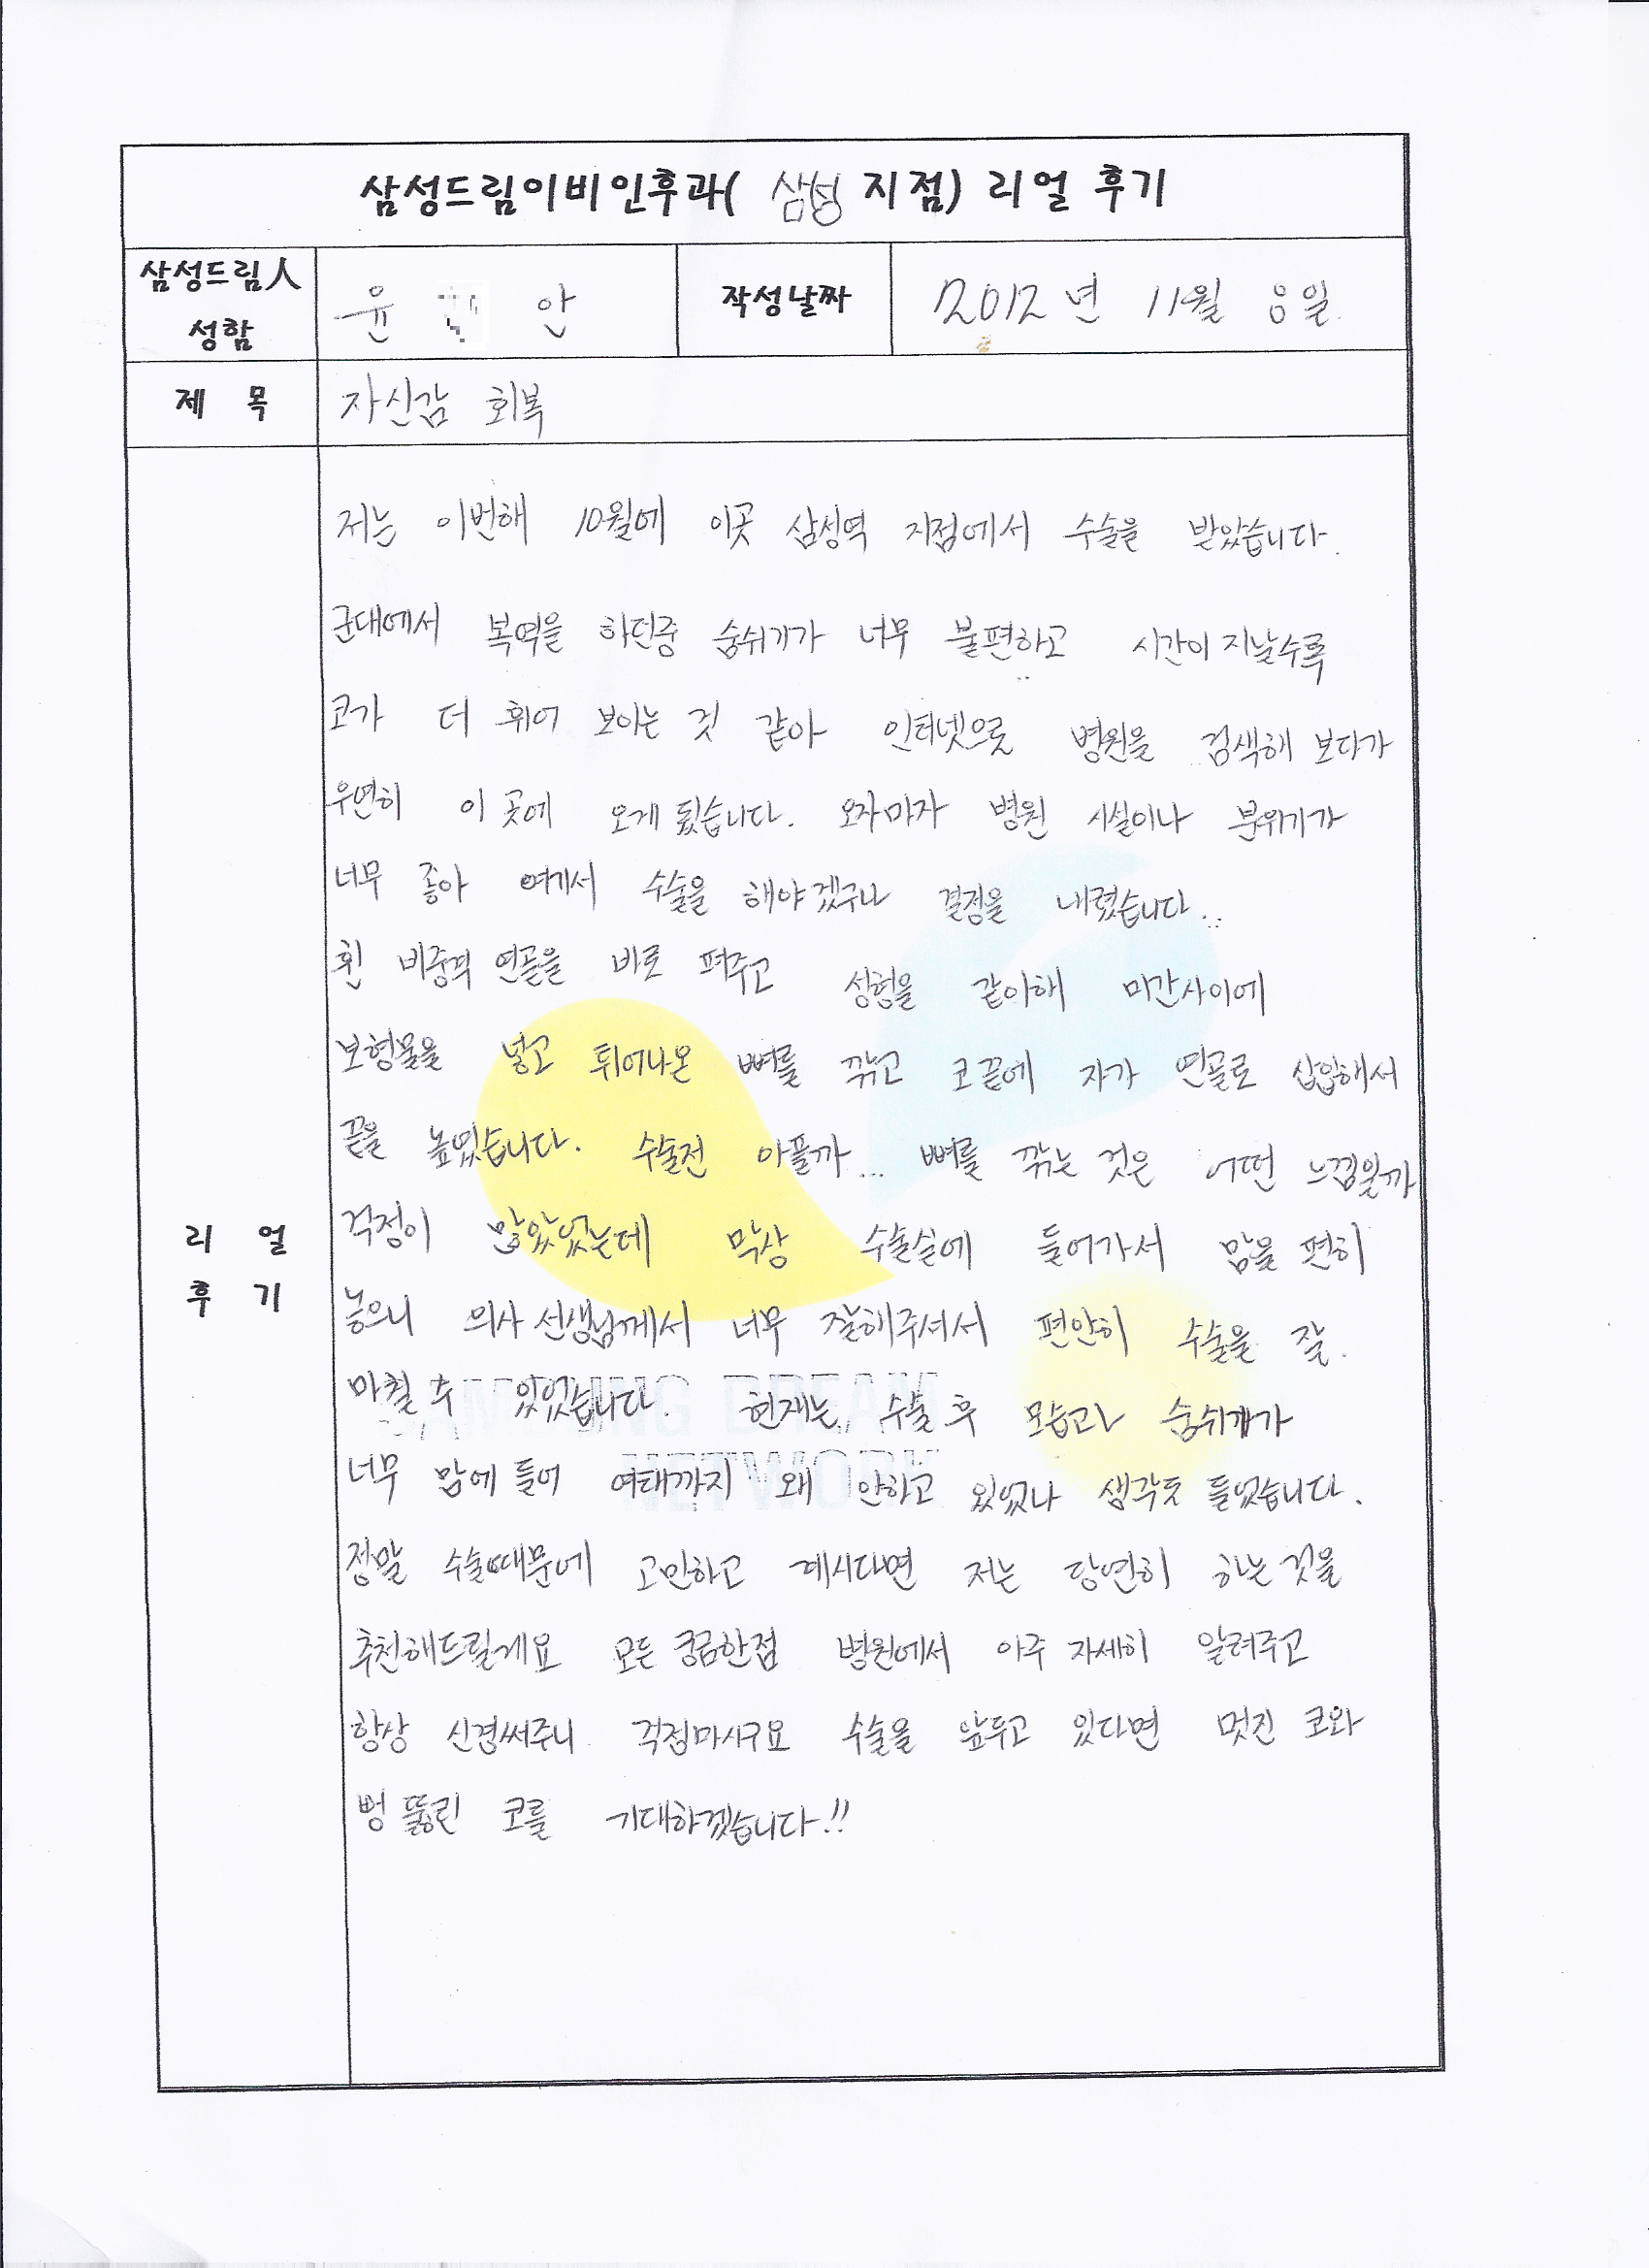 삼성드림이비인후과( 삼성 지점) 리얼 후기
삼성드림人 성함
윤 안
작성날짜
2012년 11월 8일
제 목
자신감 회복
리 얼 후 기
저는 이번해 10월에 이곳 삼성역 지점에서 수술을 받았습니다.
군대에서 복역을 하던중 숨쉬기가 너무 불편하고 시간이 지날수록
코가 더 휘어 보이는 것 같아 인터넷으로 병원을 검색해 보다가
우연히 이 곳에 오게 됬습니다. 오자마자 병원 시설이나 분위기가
너무 좋아 여기서 수술을 해야겠구나 결정을 내렸습니다..
휜 비중격 연골을 바로 펴주고 성형을 같이해 미간사이에
보형물을 넣고 튀어나온 뼈를 깎고 코 끝에 자가 연골로 삽입해서
끝을 높였습니다. 수술전 아플까... 뼈를 깎는 것은 어떤 느낌일까
걱정이 많았었는데 막상 수술실에 들어가서 맘을 편히
놓으니 의사 선생님께서 너무 잘해주셔서 편안히 수술을 잘.
마칠 수 있었습니다. 현재는 수술 후 모습과 숨쉬기가
너무 맘에 들어 여태까지 왜 안하고 있었나 생각도 들었습니다.
정말 수술때문에 고민하고 계시다면 저는 당연히 하는 것을
추천해드릴게요 모든 궁금한점 병원에서 아주 자세히 알려주고
항상 신경써주니 걱정마시구요 수술을 앞두고 있다면 멋진 코와
뻥 뚫린 코를 기대하겠습니다!!
SAMSUNG DREAM
NETWORK